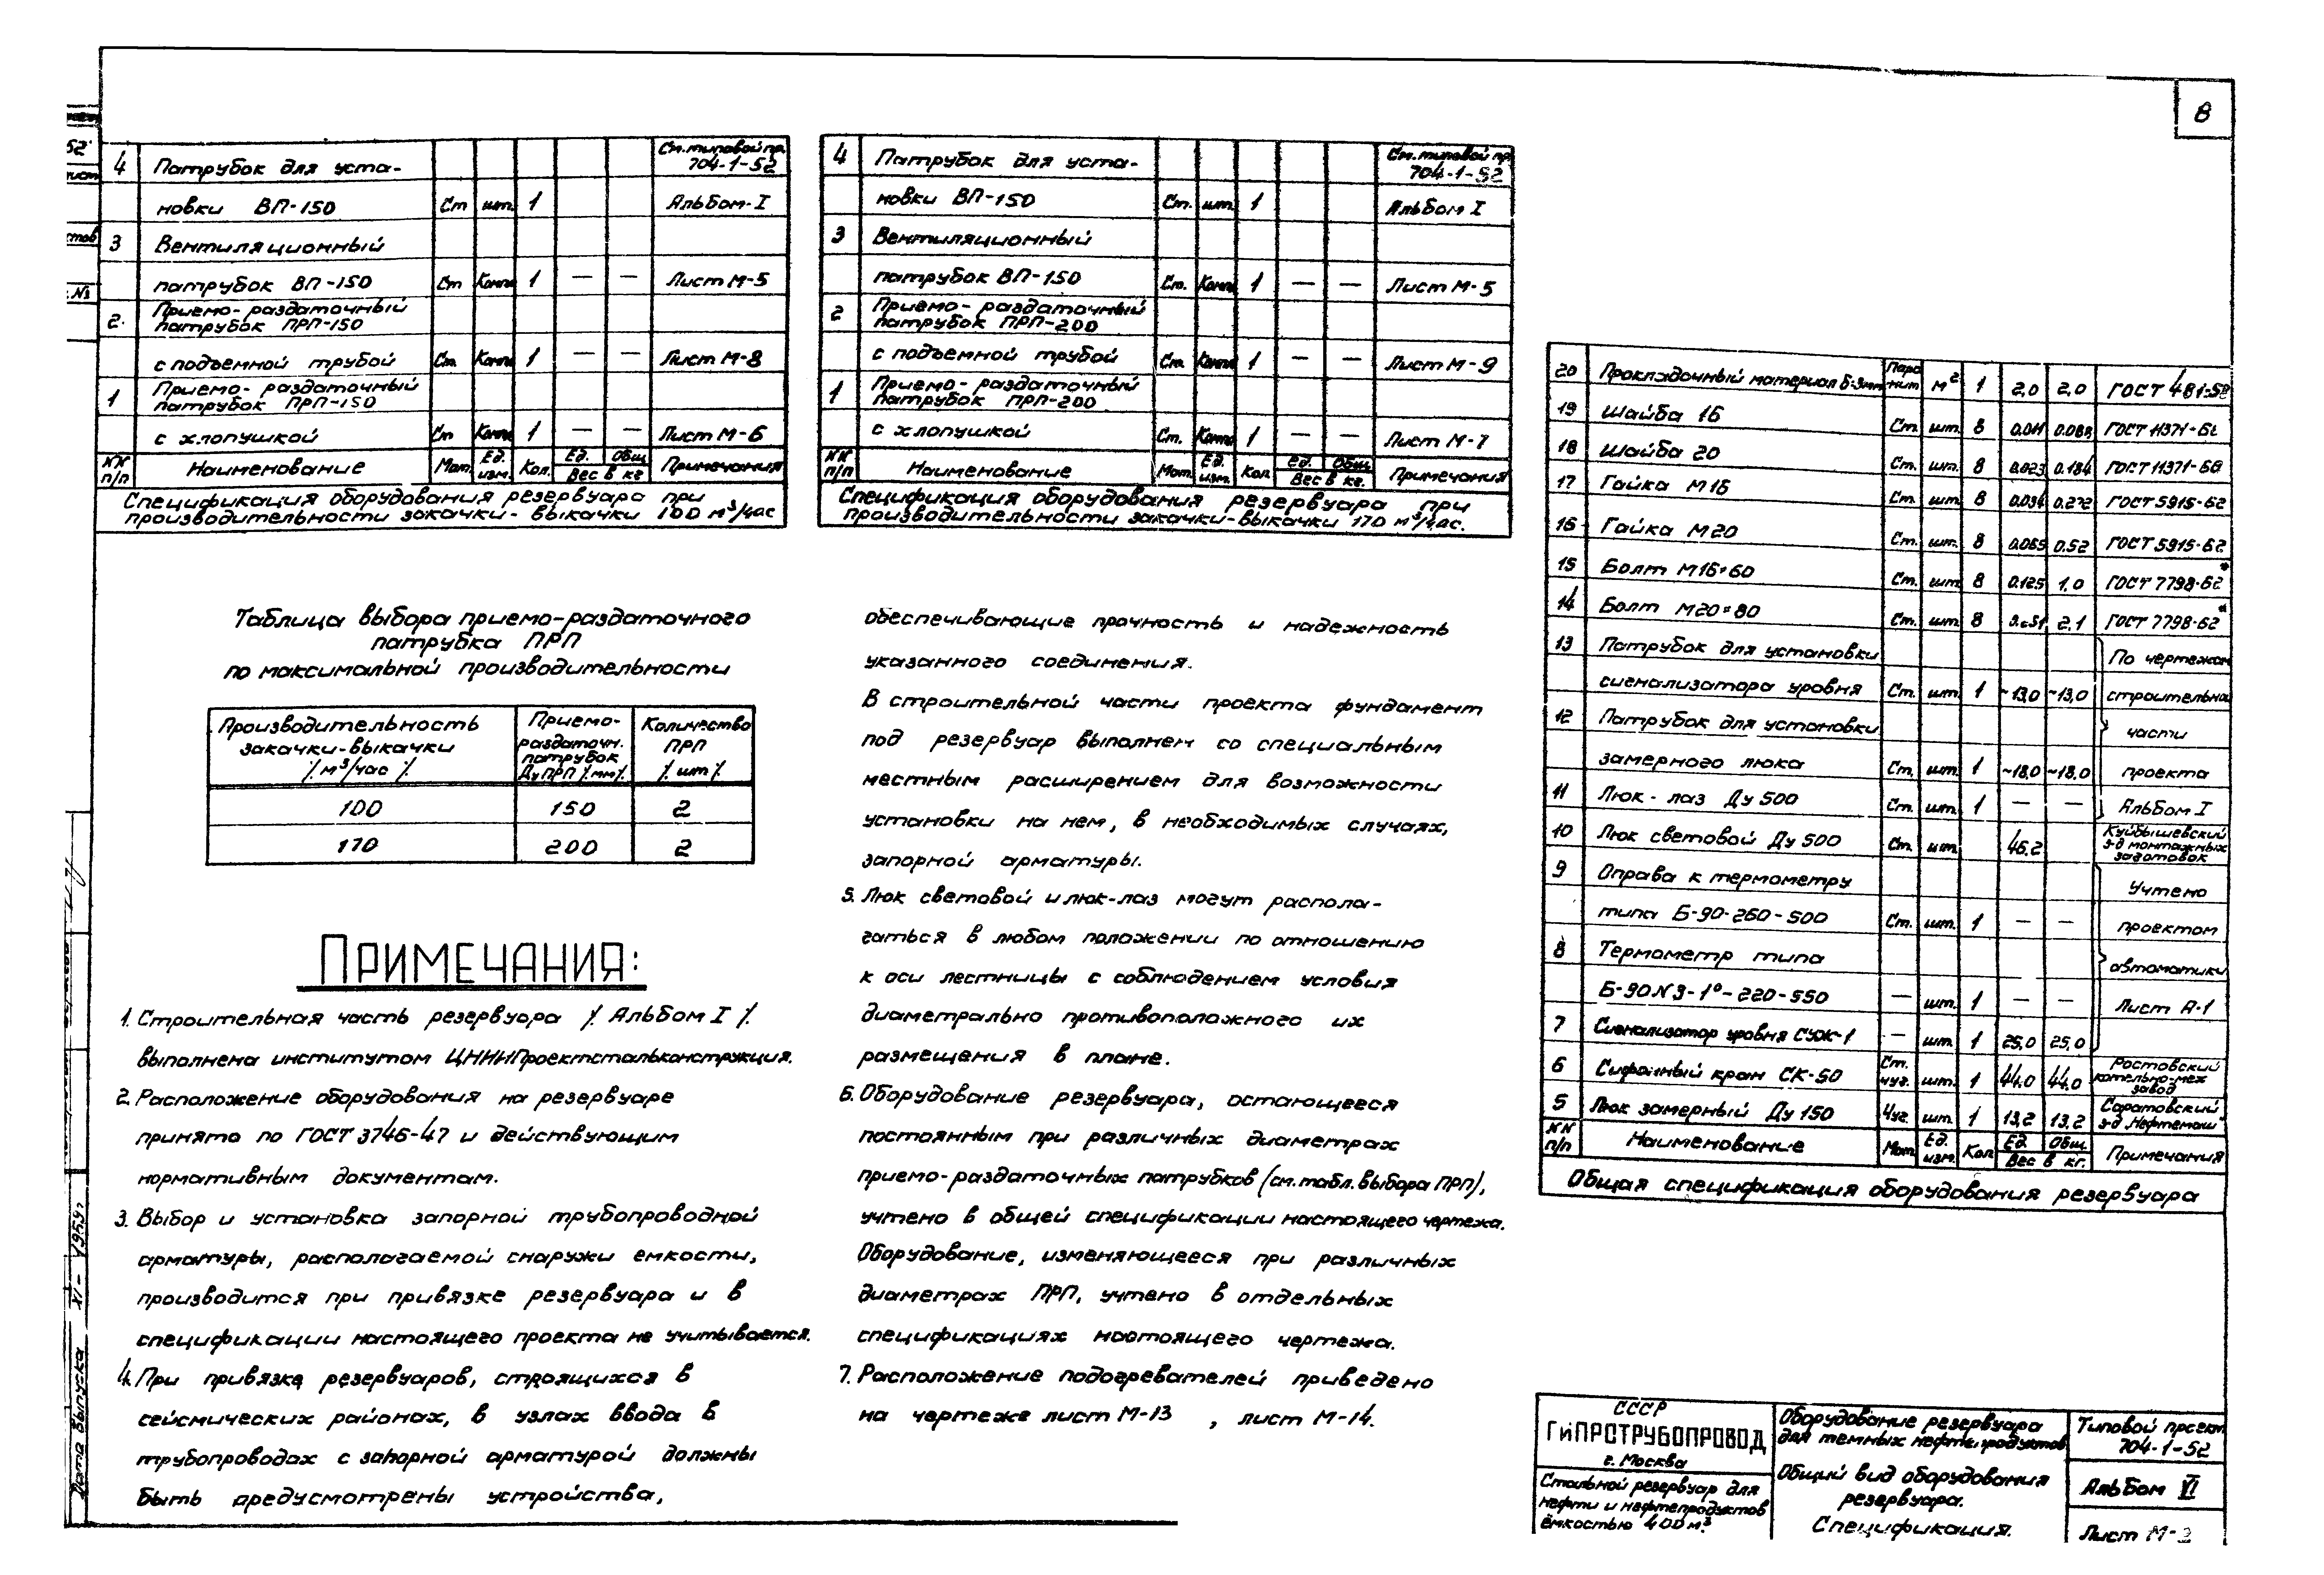 8
4 Патрубок для уста- См. типовой пр. 704-1-52
новки ВП-150 Ст шт. 1 Альбом-I
3 Вентиляционный
патрубок ВП-150 Ст Комп 1 — — Лист М-5
2. Приемо-раздаточный
патрубок ПРП-150
с подъемной трубой Ст. Комп 1 — — Лист М-8
1 Приемо-раздаточный
патрубок ПРП-150
с хлопушкой Ст Комп 1 — — Лист М-6
NN п/п Наименование Мат. Ед. изм. Кол. Ед. Общ Вес в кг Примечания
Спецификация оборудования резервуара при
производительности закачки-выкачки 100 м³/час
4 Патрубок для уста- См. типовой пр. 704-1-52
новки ВП-150 Ст. шт. 1 Альбом I
3 Вентиляционный
патрубок ВП-150 Ст. Комп 1 — — Лист М-5
2 Приемо-раздаточный
патрубок ПРП-200
с подъемной трубой Ст. Комп 1 — — Лист М-9
1 Приемо-раздаточный
патрубок ПРП-200
с хлопушкой Ст. Комп 1 — — Лист М-7
NN п/п Наименование Мат. Ед. изм. Кол Ед. Общ. Вес в кг. Примечания
Спецификация оборудования резервуара при
производительности закачки-выкачки 170 м³/час.
Таблица выбора приемо-раздаточного
патрубка ПРП
по максимальной производительности
Производительность закачки-выкачки /м³/час/ Приемо-раздаточн. патрубок Ду ПРП /мм/. Количество ПРП /шт/
100 150 2
170 200 2
Примечания:
1. Строительная часть резервуара /Альбом I/
выполнена институтом ЦНИИПроектстальконструкция.
2. Расположение оборудования на резервуаре
принято по ГОСТ 3746-47 и действующим
нормативным документам.
3. Выбор и установка запорной трубопроводной
арматуры, располагаемой снаружи емкости,
производится при привязке резервуара и в
спецификации настоящего проекта не учитывается.
4. При привязке резервуаров, строящихся в
сейсмических районах, в узлах ввода в
трубопроводах с запорной арматурой должны
быть предусмотрены устройства,
обеспечивающие прочность и надежность
указанного соединения.
В строительной части проекта фундамент
под резервуар выполнен со специальным
местным расширением для возможности
установки на нем, в необходимых случаях,
запорной арматуры.
5. Люк световой и люк-лаз могут распола-
гаться в любом положении по отношению
к оси лестницы с соблюдением условия
диаметрально противоположного их
размещения в плане.
6. Оборудование резервуара, остающееся
постоянным при различных диаметрах
приемо-раздаточных патрубков (см. табл. выбора ПРП),
учтено в общей спецификации настоящего чертежа.
Оборудование, изменяющееся при различных
диаметрах ПРП, учтено в отдельных
спецификациях настоящего чертежа.
7. Расположение подогревателей приведено
на чертеже лист М-13, лист М-14.
20 Прокладочный материал б-3мм Паро нит м² 1 2,0 2,0 ГОСТ 481-58
19 Шайба 16 Ст. шт. 8 0.011 0.088 ГОСТ 11371-68
18 Шайба 20 Ст. шт. 8 0.023 0.184 ГОСТ 11371-68
17 Гайка М16 Ст. шт. 8 0.034 0.272 ГОСТ 5915-62
16 Гайка М20 Ст. шт. 8 0.065 0.52 ГОСТ 5915-62
15 Болт М16×60 Ст. шт 8 0.125 1.0 ГОСТ 7798-62*
14 Болт М20×80 Ст. шт. 8 2.1 ГОСТ 7798-62*
13 Патрубок для установки По чертежам
сигнализатора уровня Ст. шт. 1 ~13,0 ~13,0 строительной
12 Патрубок для установки части
замерного люка Ст. шт. 1 ~18,0 ~18,0 проекта
11 Люк-лаз Ду 500 Ст. шт. 1 — — Альбом I
10 Люк световой Ду 500 Ст. шт. 46.2 Куйбышевский з-д монтажных заготовок
9 Оправа к термометру Учтено
типа Б-90-260-500 Ст. шт. 1 — — проектом
8 Термометр типа автоматики
Б-90 N3-1°-220-550 — шт. 1 — — Лист А-1
7 Сигнализатор уровня СУЖ-1 — шт. 1 25,0 25,0
6 Сифонный кран СК-50 Ст. чуг. шт. 1 44.0 44.0 Ростовский котельно-мех завод
5 Люк замерный Ду 150 Чуг шт. 1 13,2 13,2 Саратовский з-д „Нефтемаш"
NN п/п Наименование Мат. Ед. изм. Кол Ед. Общ. Вес в кг. Примечания
Общая спецификация оборудования резервуара
СССР
ГИПРОТРУБОПРОВОД
г. Москва
Стальной резервуар для
нефти и нефтепродуктов
ёмкостью 400 м³
Оборудование резервуара
для темных нефтепродуктов
Общий вид оборудования
резервуара.
Спецификация.
Типовой проект
704-1-52
Альбом VI
Лист М-
Дата выпуска XI - 1969г